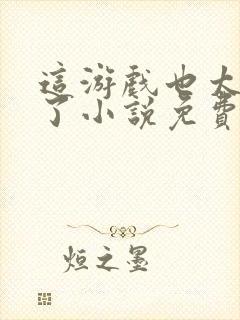 這游戲也太
了小說免費
烜之墨